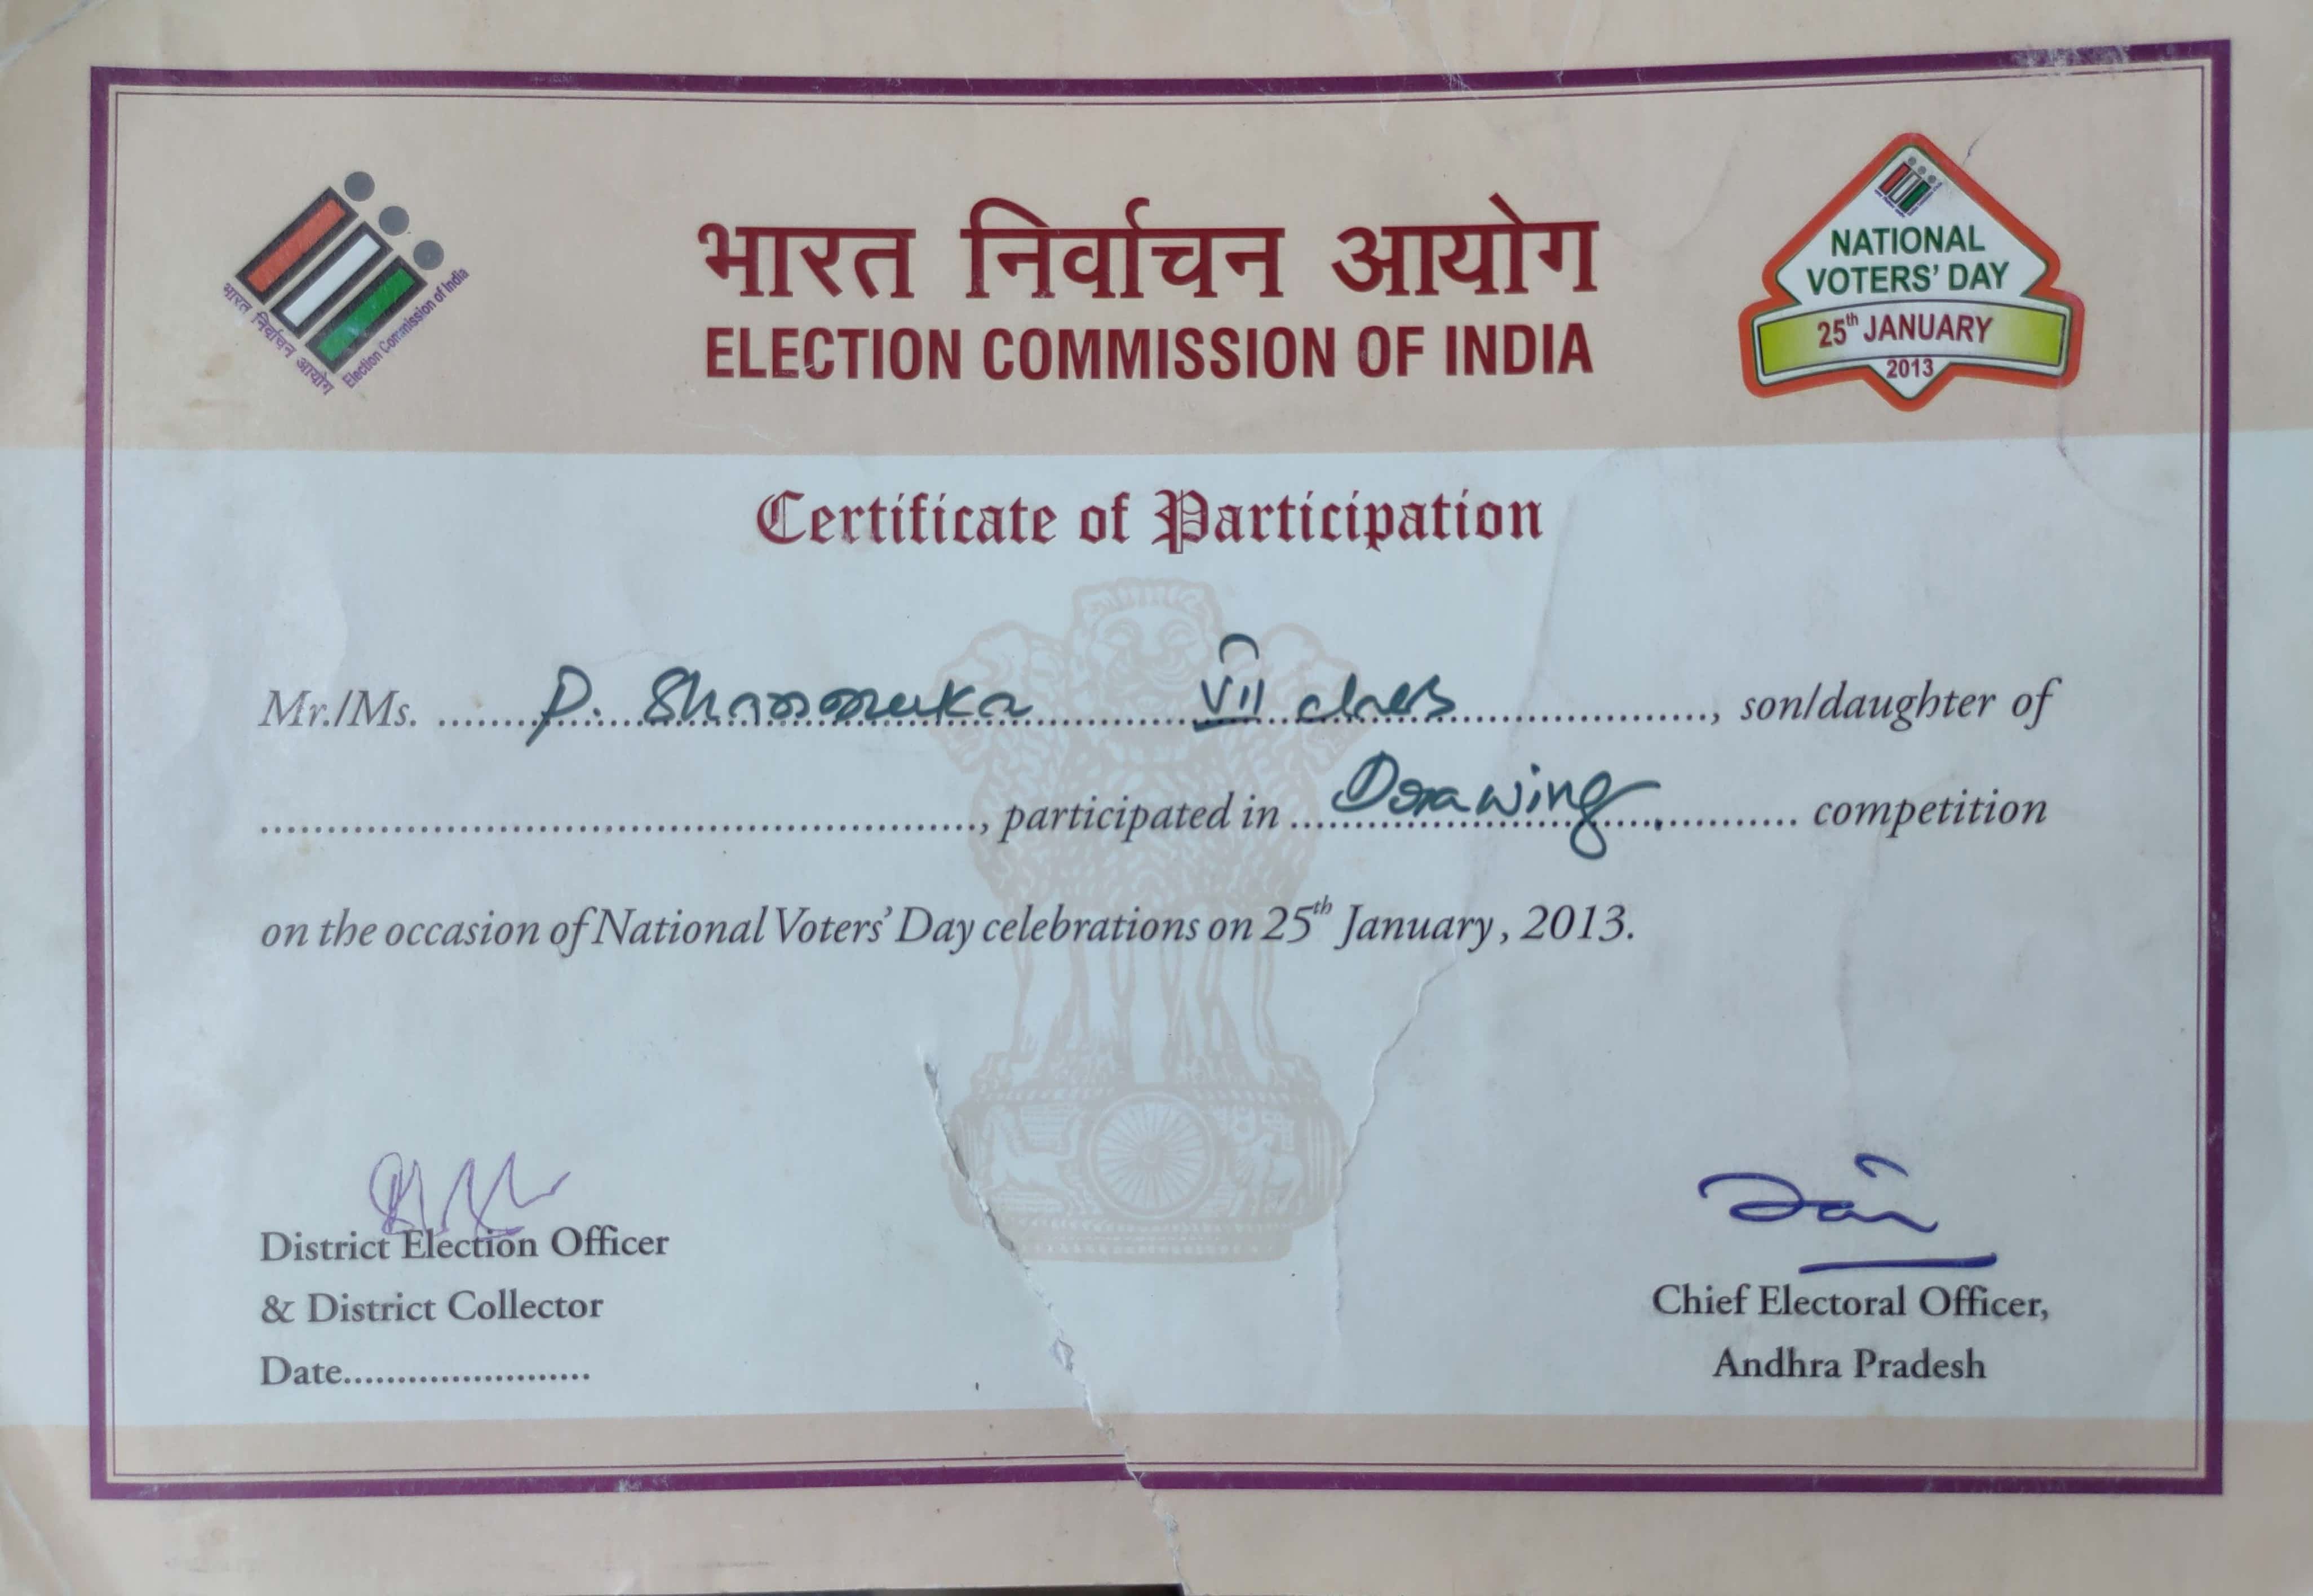 भारत निर्वाचन आयोग
Election Commission of India
भारत निर्वाचन आयोग
ELECTION COMMISSION OF INDIA
NATIONAL
VOTERS' DAY
25th JANUARY
2013
Certificate of Participation
Mr./Ms. .......P. Shanmuka VII class......................, son/daughter of
......................................................, participated in ....Drawing............. competition
on the occasion of National Voters' Day celebrations on 25th January, 2013.
District Election Officer
& District Collector
Date.......................
Chief Electoral Officer,
Andhra Pradesh